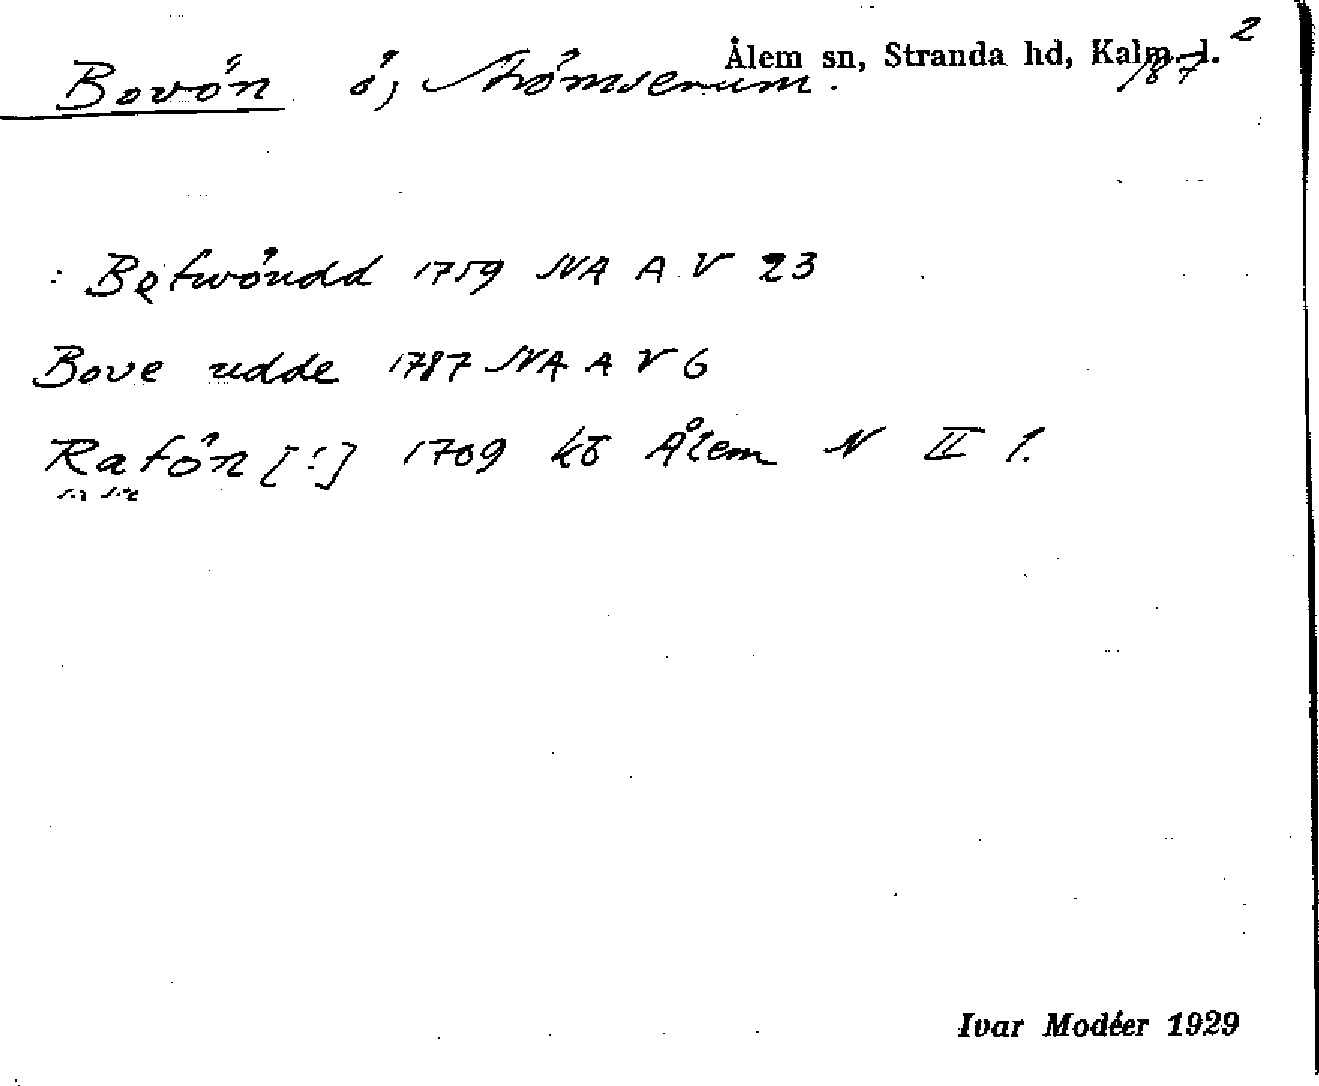 Ålem sn, Stranda hd, Kalm. l. 2
Bovön ö, Strömserum. 187
: Bofwöudd 1759 NA A V 23
Bove udde 1787 NA A V 6
Rafön [!] 1709 kb Ålem N II 1.
Ivar Modéer 1929